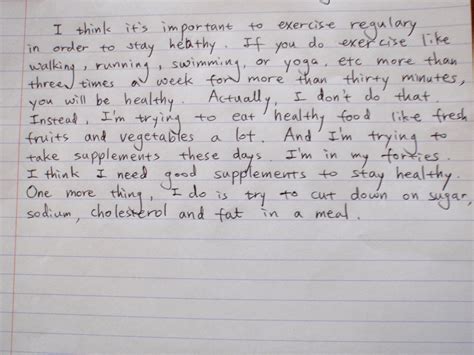 I think it's important to exercise regulary
in order to stay heathy. If you do exercise like
walking, running, swimming, or yoga, etc more than
three times a week for more than thirty minutes,
you will be healthy. Actually, I don't do that.
Instead, I'm trying to eat healthy food like fresh
fruits and vegetables a lot. And I'm trying to
take supplements these days. I'm in my forties.
I think I need good supplements to stay healthy.
One more thing, I do is try to cut down on sugar,
sodium, cholesterol and fat in a meal.